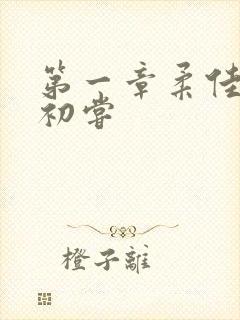 第一章柔佳
初尝
橙子離